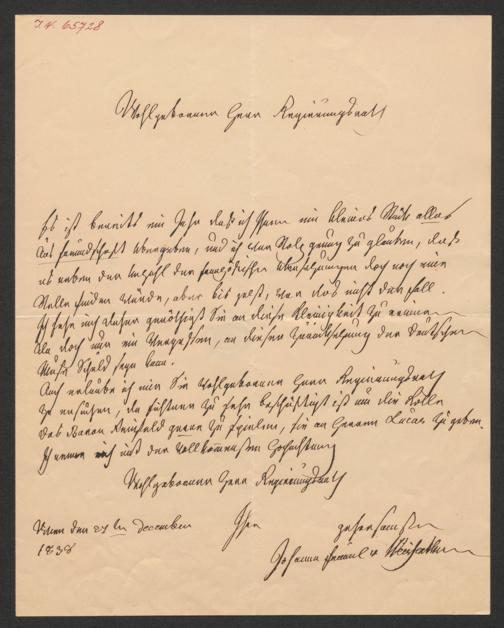 I.N. 65728
Wohlgeborner Herr Regierungsrath
Es ist bereits ein Jahr daß ich Ihnen ein kleines Stück alles
aus Freundschaft übergeben, und ich war stolz genug zu glauben, daß
es neben der Anzahl der französischen Übersetzungen doch noch eine
Stelle finden würde, aber bis jetzt, war das nicht der Fall.
Ich sehe mich daher genöthigt Sie an diese Kleinigkeit zu erinnern
da doch nur ein Vergessen, an dieser Zurücksetzung der deutschen
Muse Schuld seyn kann.
Auch erlaube ich mir Sie Wohlgeborner Herr Regierungsrath
zu ersuchen, da Fichtner zu sehr beschäftigt ist um die Rolle
des Baron Reinfeld zu spielen, sie an Herrn Lucas zu geben.
Ich nenne mich mit der vollkommensten Hochachtung
Wohlgeborner Herr Regierungsrath
Wien den 27ten December Ihre gehorsamste
1838 Johanna v Weißenthurn